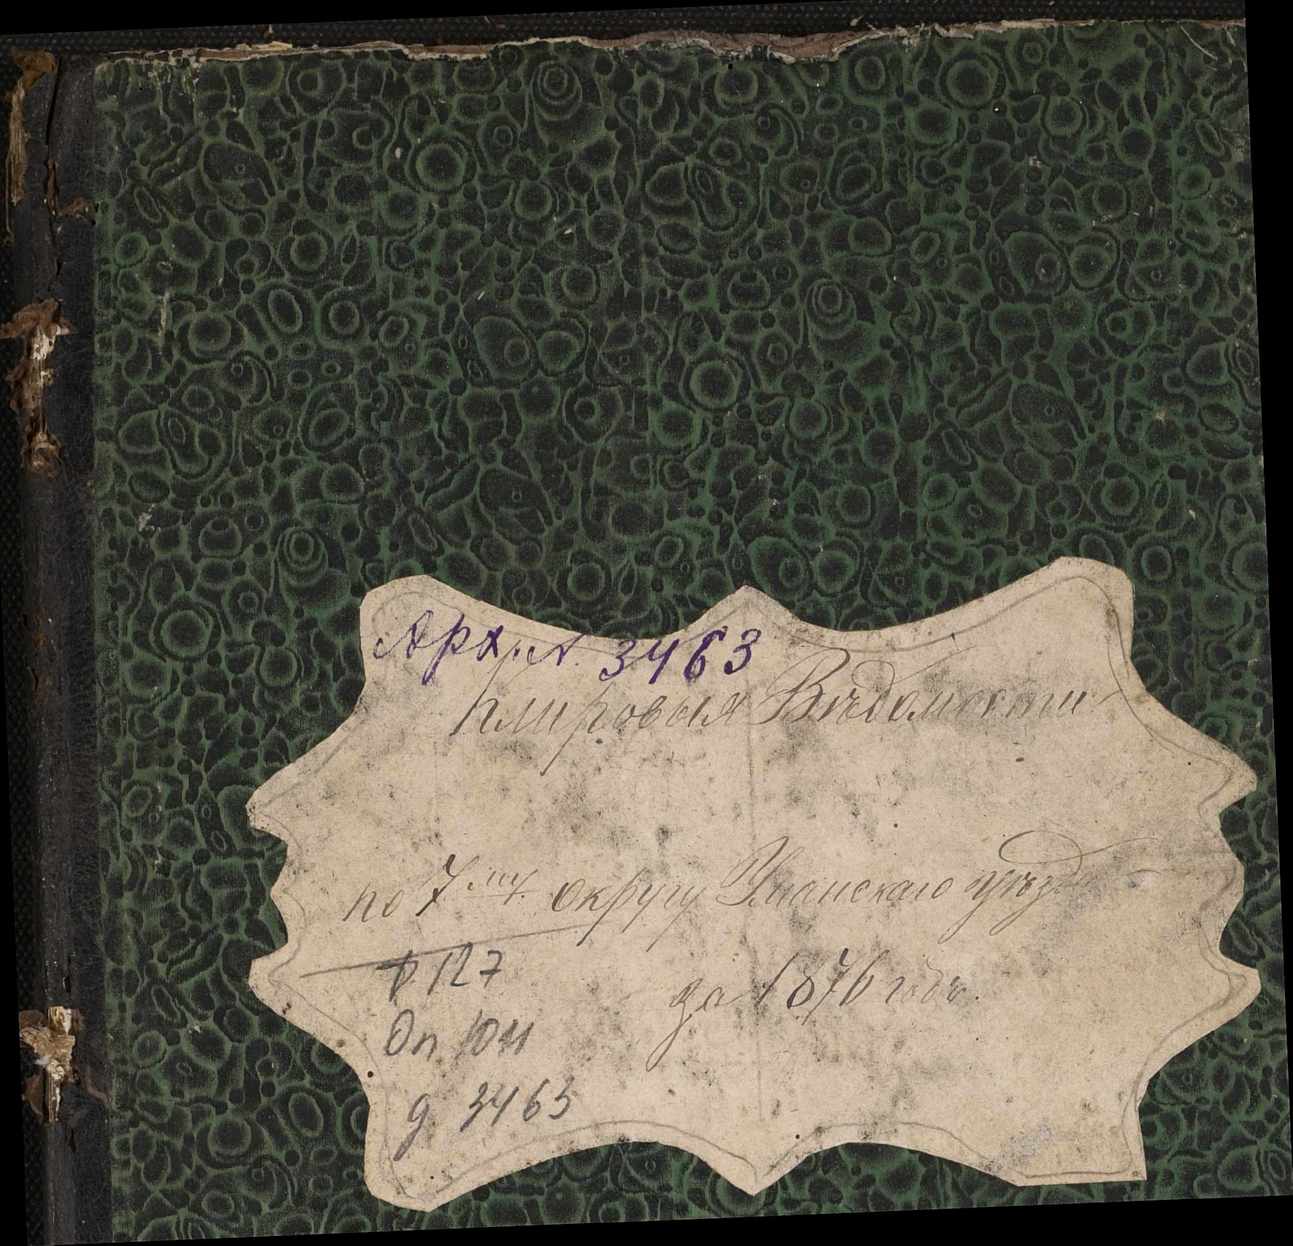 Арх. № 3463
Клировыя Вѣдомости
по 7му округу Уманскаго уѣзда
за 1876 годъ.
ф 127
Оп 1011
д 3463